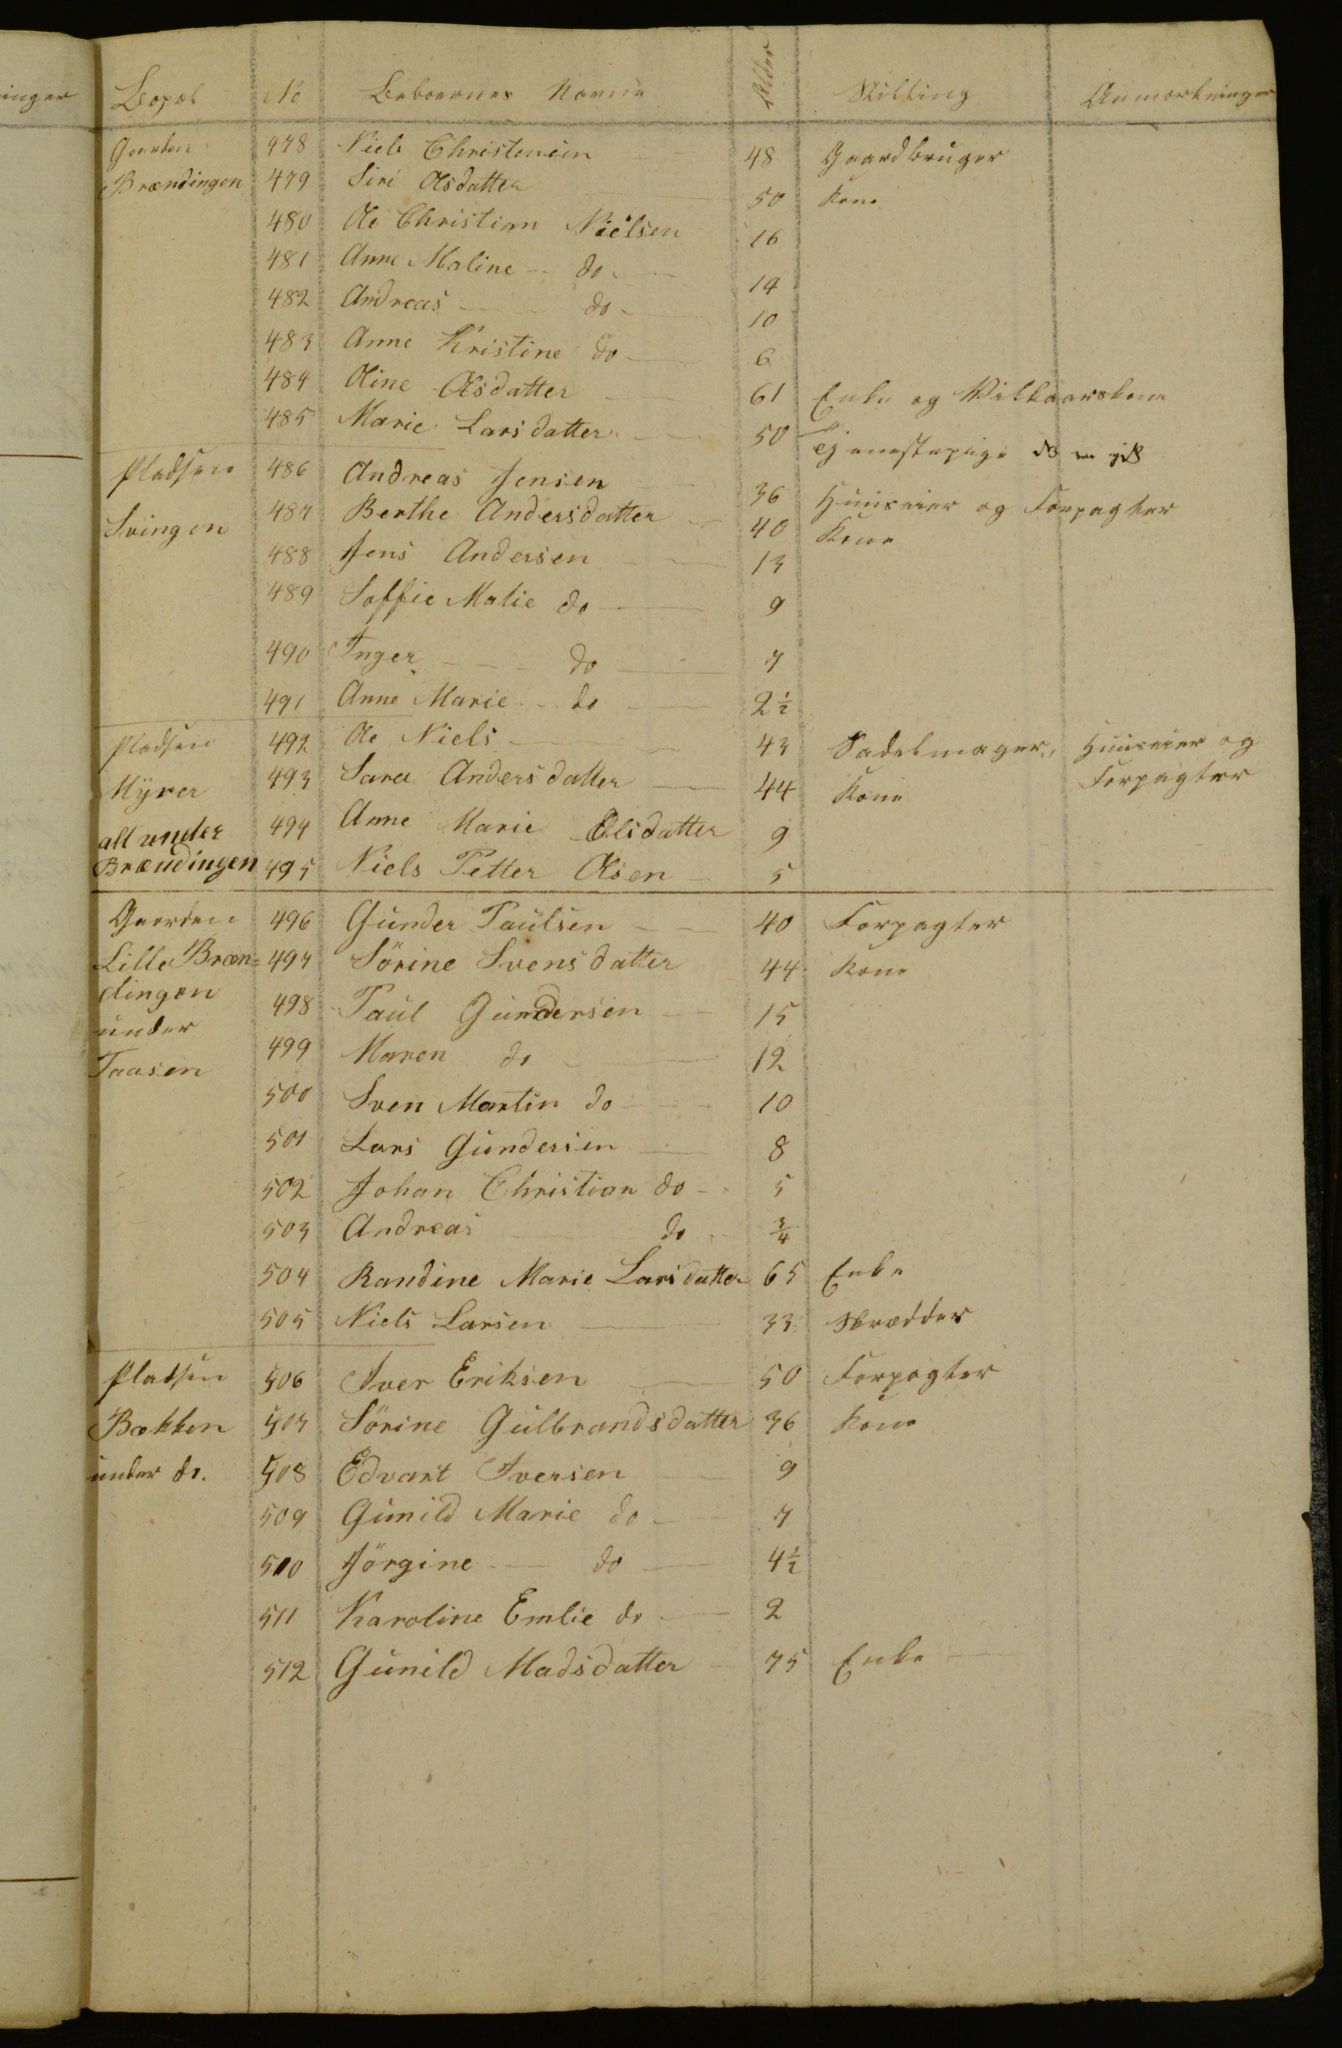 Bopæl No Beboernes Navne Alder Stilling Anmærkninger
Gaarden 478 Niels Christensen 48 Gaardbruger
Brændingen 479 Siri Olsdatter 50 Kone
480 Ole Christian Nielsen 16
481 Anne Maline do 14
482 Andreas do 10
483 Anne Kristine do 6
484 Oline Olsdatter 61 Enke og Vilkaarskone
485 Marie Larsdatter 50 Tjenestepige
Pladsen 486 Andreas Jensen 36 Huuseier og Forpagter
Svingen 487 Berthe Andersdatter 40 Kone
488 Jens Andersen 13
489 Soffie Malie do 9
490 Inger do 7
491 Anne Marie do 2½
Pladsen 492 Ole Niels 43 Sadelmager, Huuseier og
Myrer 493 Sara Andersdatter 44 Kone Forpagter
alt under 494 Anne Marie Olsdatter 9
Brændingen 495 Niels Petter Olsen 5
Gaarden 496 Gunder Paulsen 40 Forpagter
Lille Bræn= 497 Sörine Svensdatter 44 Kone
dingen 498 Paul Gundersen 15
under 499 Maren do 12
Taasen
500 Sven Martin do 10
501 Lars Gundersen 8
502 Johan Christian do 5
503 Andreas do ¾
504 Randine Marie Larsdatter 65 Enke
505 Niels Larsen 33 Skrædder
Pladsen 506 Iver Eriksen 50 Forpagter
Bækken 507 Sörine Gulbrandsdatter 36 Kone
under do. 508 Edvart Iversen 9
509 Gunild Marie do 7
510 Jörgine do 4½
511 Karoline Emlie do 2
512 Gunild Madsdatter 75 Enke